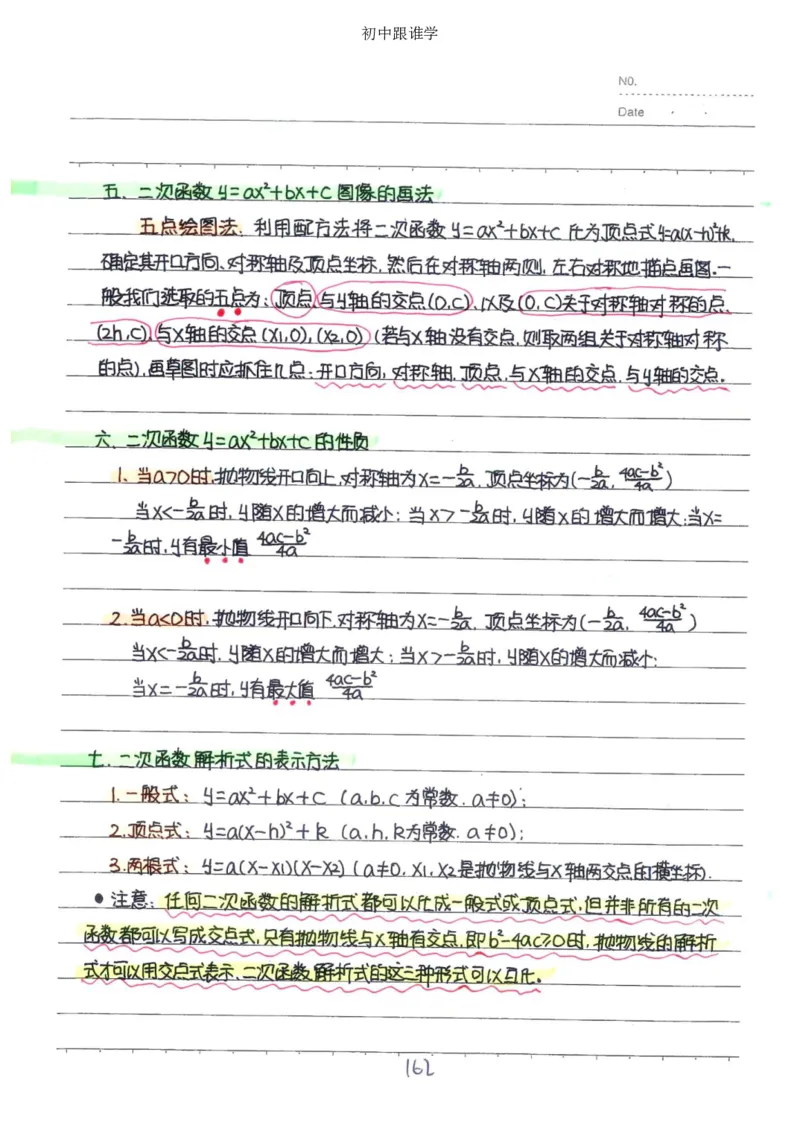 初中跟谁学
N0.
Date
五、二次函数y=ax²+bx+c图像的画法
五点绘图法：利用配方法将二次函数y=ax²+bx+c化为顶点式y=a(x-h)²+k,
确定其开口方向、对称轴及顶点坐标,然后在对称轴两侧,左右对称地描点画图.一
般我们选取的五点为：顶点、与y轴的交点(0,c)、以及(0,c)关于对称轴对称的点
(2h,c)、与x轴的交点(x₁,0),(x₂,0)(若与x轴没有交点,则取两组关于对称轴对称
的点),画草图时应抓住几点：开口方向,对称轴,顶点,与x轴的交点,与y轴的交点.
六、二次函数y=ax²+bx+c的性质
1.当a>0时,抛物线开口向上,对称轴为x=-b/2a,顶点坐标为(-b/2a, (4ac-b²)/4a)
当x<-b/2a时,y随x的增大而减小；当x>-b/2a时,y随x的增大而增大;当x=
-b/2a时,y有最小值 (4ac-b²)/4a
2.当a<0时,抛物线开口向下,对称轴为x=-b/2a,顶点坐标为(-b/2a, (4ac-b²)/4a)
当x<-b/2a时,y随x的增大而增大；当x>-b/2a时,y随x的增大而减小;
当x=-b/2a时,y有最大值 (4ac-b²)/4a
七.二次函数解析式的表示方法
1.一般式：y=ax²+bx+c (a.b.c为常数.a≠0)；
2.顶点式：y=a(x-h)²+k (a.h.k为常数.a≠0)；
3.两根式：y=a(x-x₁)(x-x₂)(a≠0,x₁,x₂是抛物线与x轴两交点的横坐标).
•注意：任何二次函数的解析式都可以化成一般式或顶点式,但并非所有的二次
函数都可以写成交点式,只有抛物线与x轴有交点,即b²-4ac≥0时,抛物线的解析
式才可以用交点式表示、二次函数解析式的这三种形式可以互化。
162